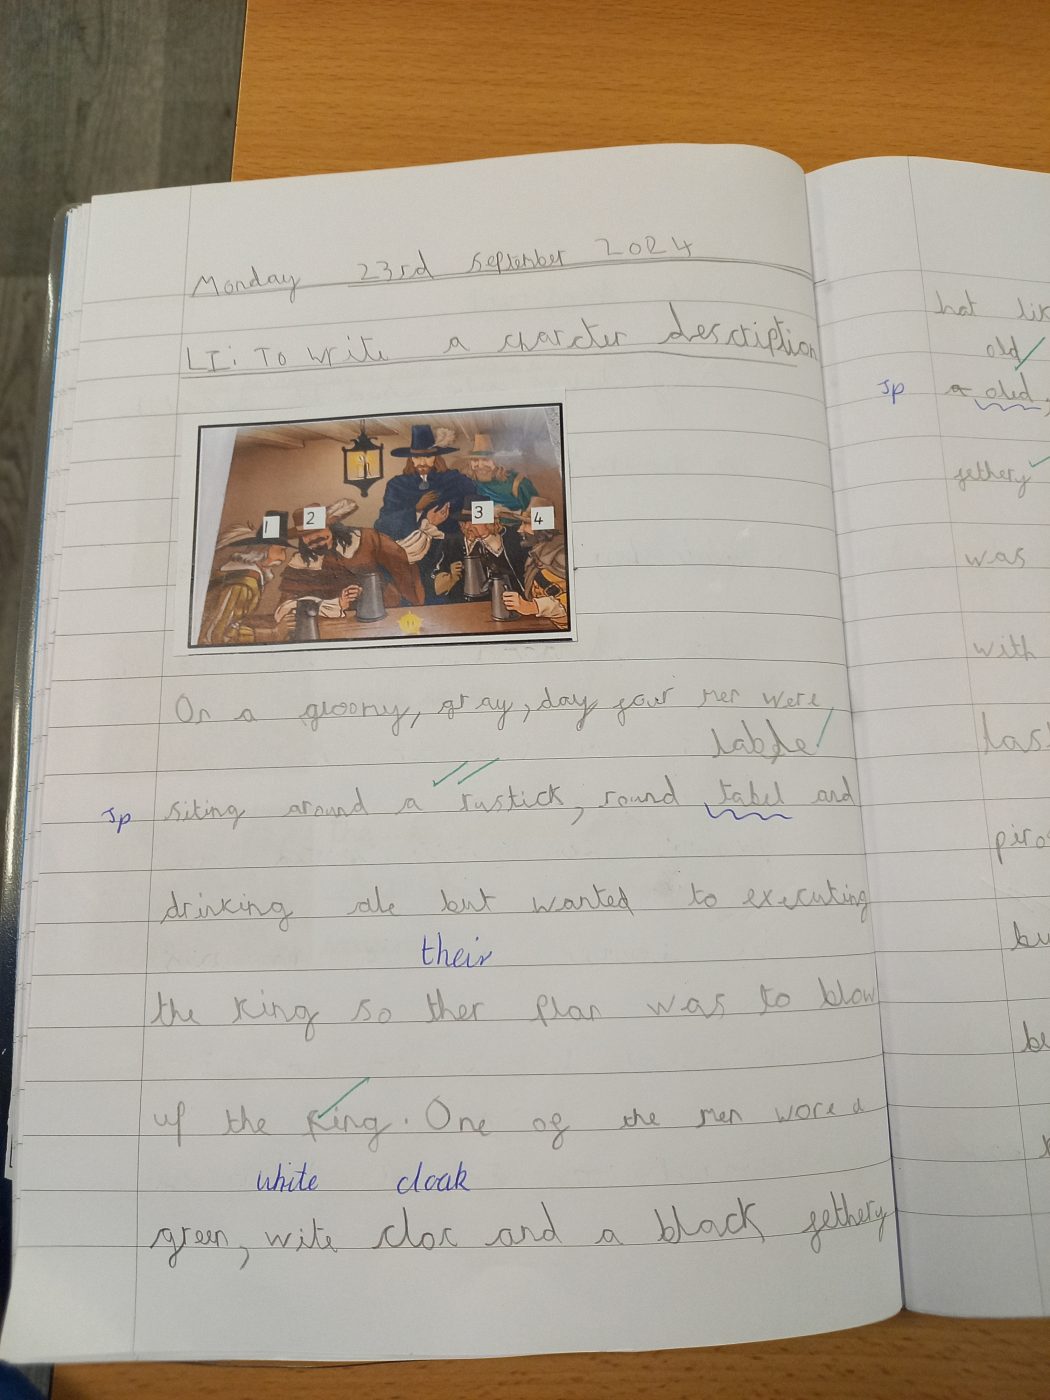 Monday 23rd September 2024
LI: To write a charcter description
1 2 3 4
On a gloomy, gray, day four men were
table
sp siting around a rustick, round tabel and
drinking ale but wanted to executing
their
the king so ther plan was to blow
up the king. One of the men wore a
white cloak
green, wite cloc and a black fethery
hat lik
old
sp a oled
fethery
was
with
las
piro
bu
be